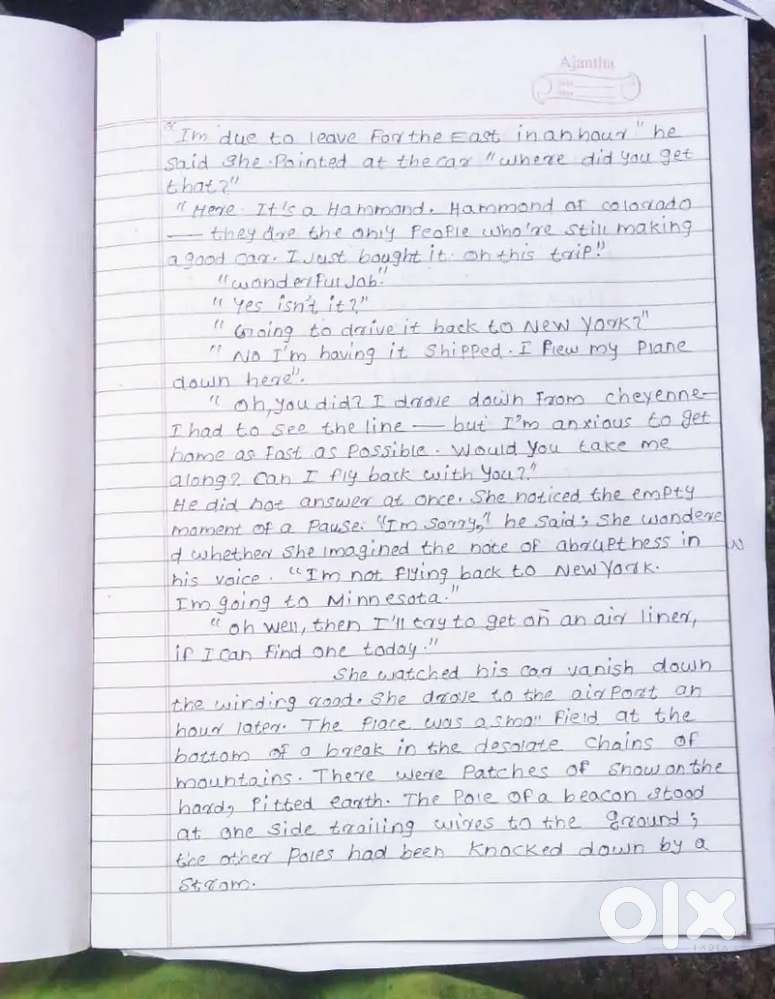 Ajantha
"Im due to leave For the East in an hour" he
said she. Pointed at the car "where did you get
that?"
"Here. It's a Hammond. Hammond of colorado
— they are the only People who're still making
a good car. I Just bought it. on this trip."
"wonderful Job."
"Yes isn't it?"
"Going to drive it back to New York?"
"No I'm having it Shipped. I Flew my Plane
down here".
"oh, you did? I drove down From cheyenne—
I had to see the line — but I'm anxious to get
home as Fast as Possible. Would you take me
along? Can I fly back with You?"
He did not answer at once. She noticed the empty
moment of a Pause: "Im sorry," he said; She wondere
d whether she Imagined the note of abruptness in
his voice. "Im not flying back to New York.
I'm going to Minnesota."
"oh well, then I'll try to get on an air liner,
if I can find one today."
She watched his car vanish down
the winding road. She drove to the airport an
hour later. The Place was a small Field at the
bottom of a break in the desolate chains of
mountains. There were Patches of Snow on the
hard, Pitted earth. The Pole of a beacon stood
at one side trailing wires to the ground;
the other Poles had been Knocked down by a
Strom.
olx
INDIA